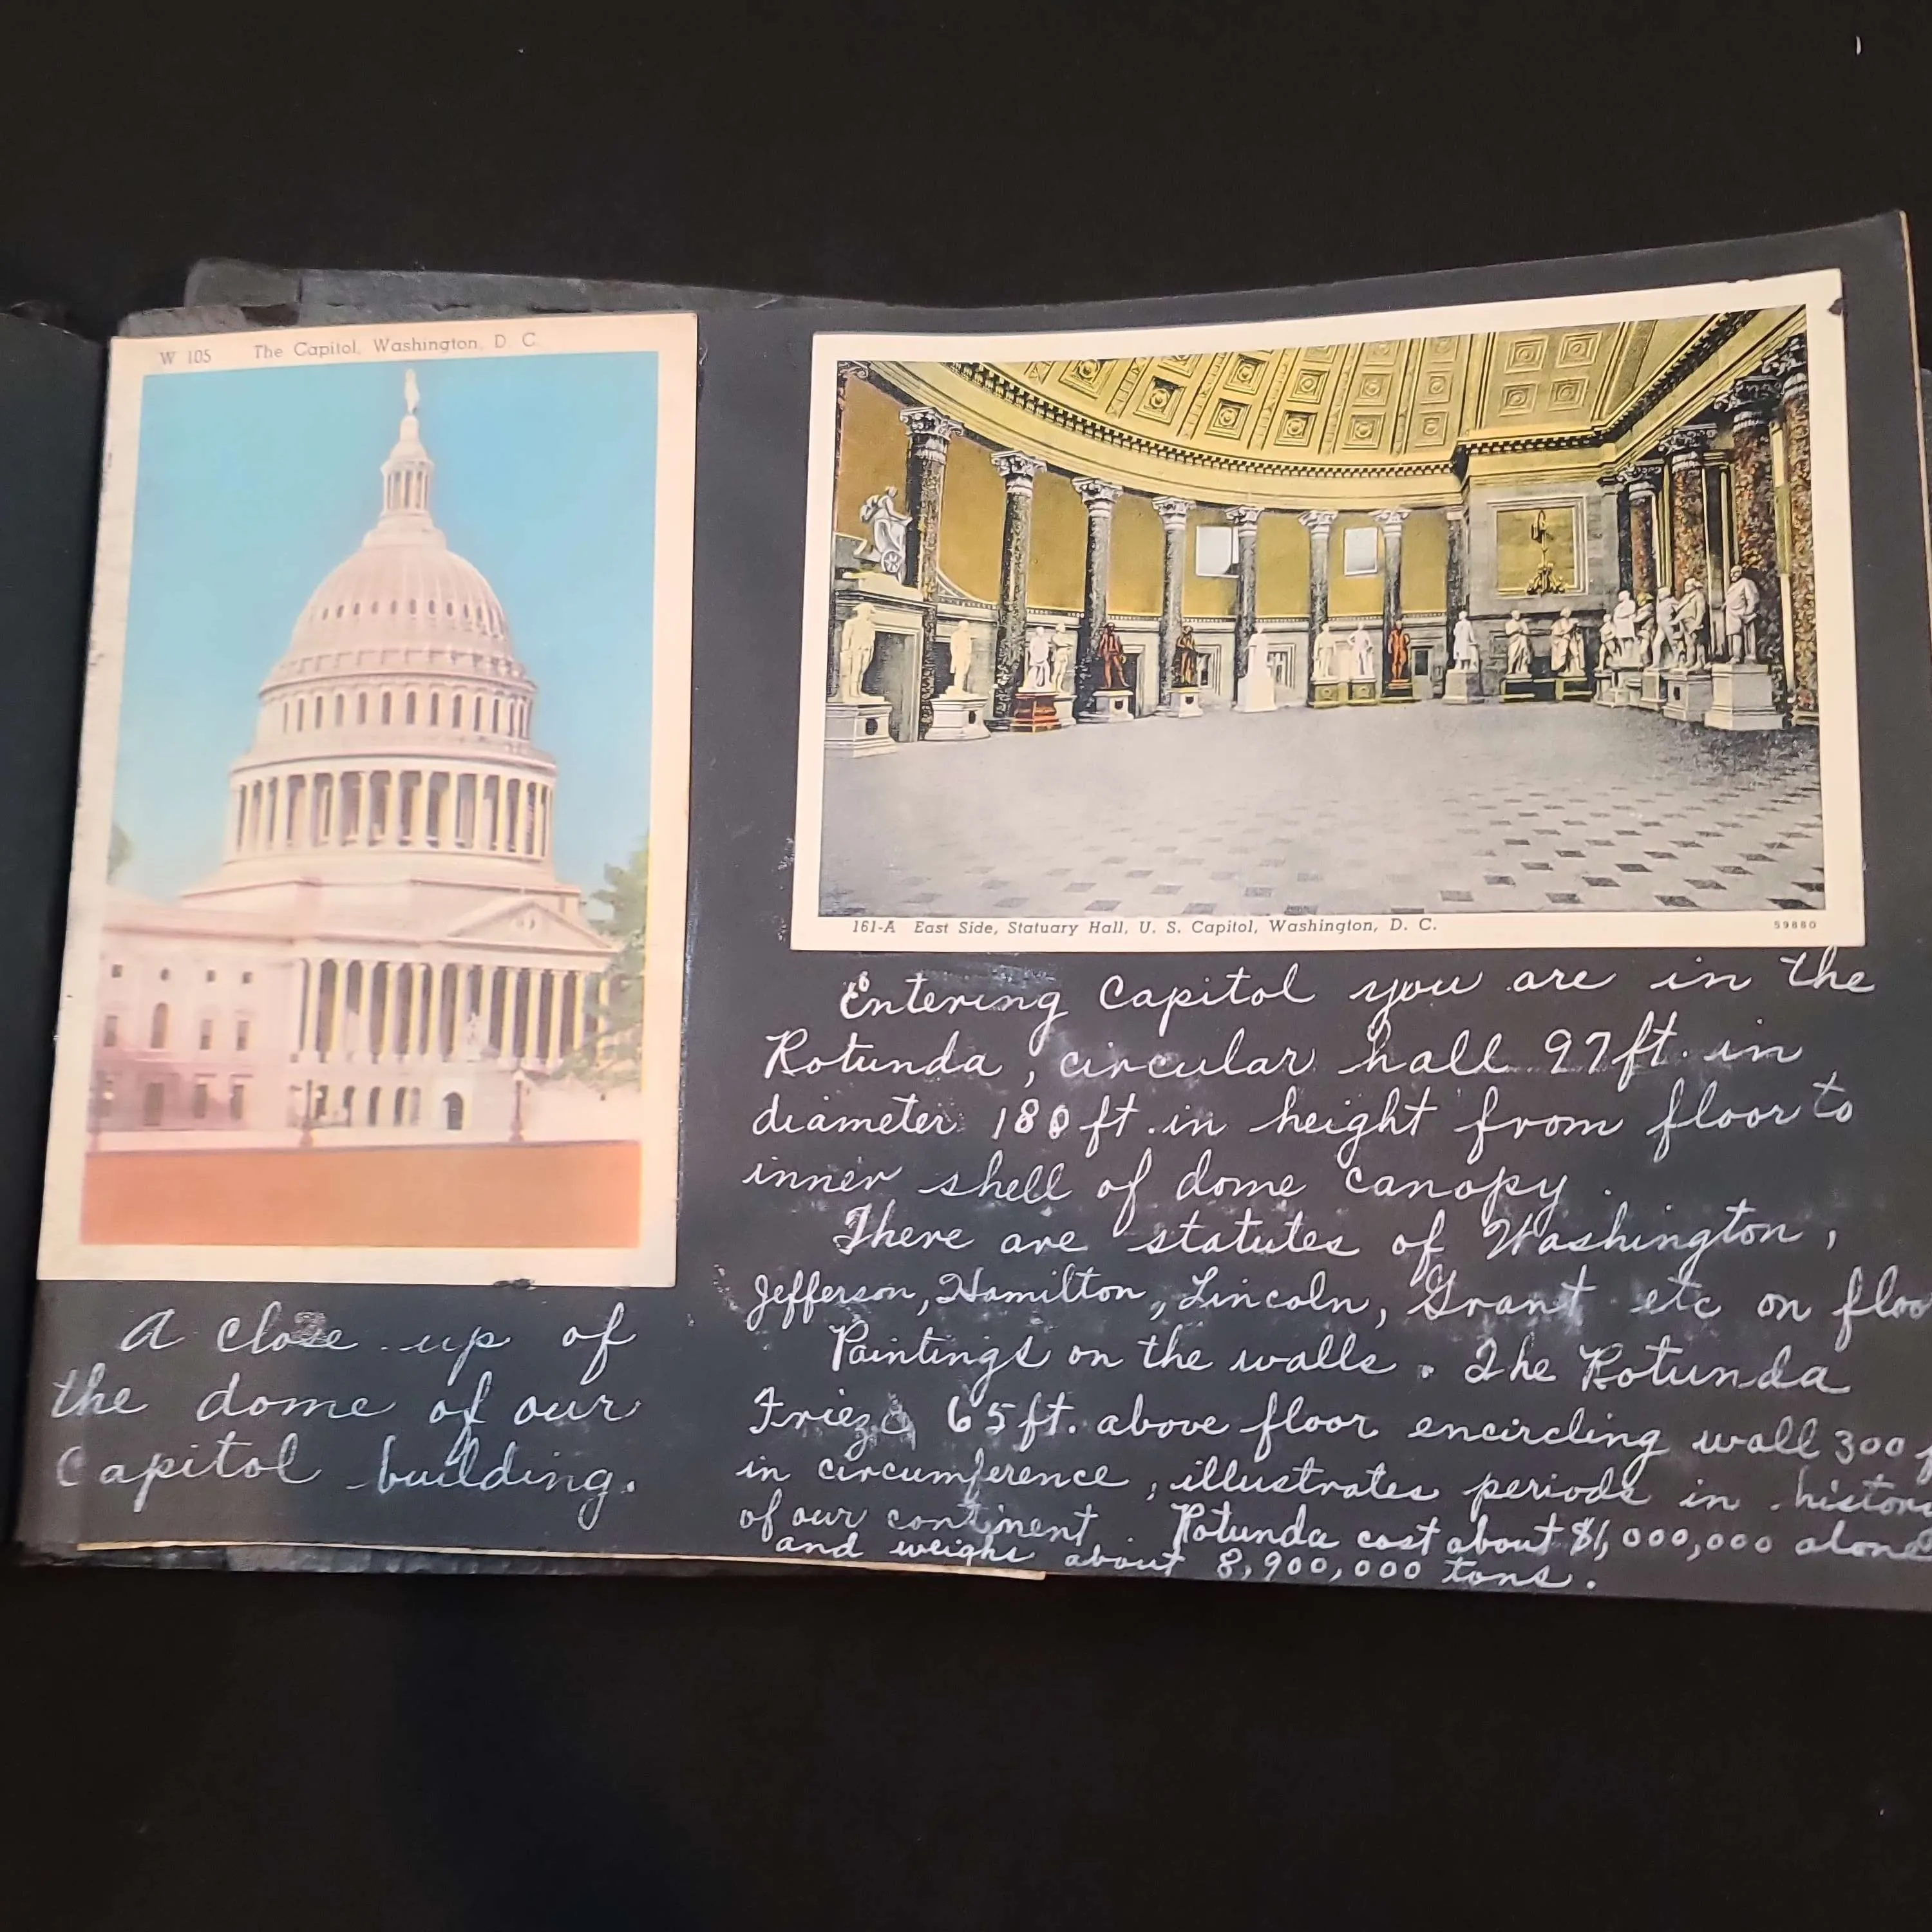 W 105 The Capitol, Washington, D C.
A close up of
the dome of our
Capitol building.
161-A East Side, Statuary Hall, U. S. Capitol, Washington, D. C. 59880
Entering Capitol you are in the
Rotunda, circular hall 97 ft. in
diameter 180 ft. in height from floor to
inner shell of dome canopy.
There are statutes of Washington,
Jefferson, Hamilton, Lincoln, Grant etc on
Paintings on the walls. The Rotunda
Frieze 65 ft. above floor encircling wall 300
in circumference, illustrates periods in
of our continent. Rotunda cost about $1,000,000 alone
and weighs about 8,900,000 tons.